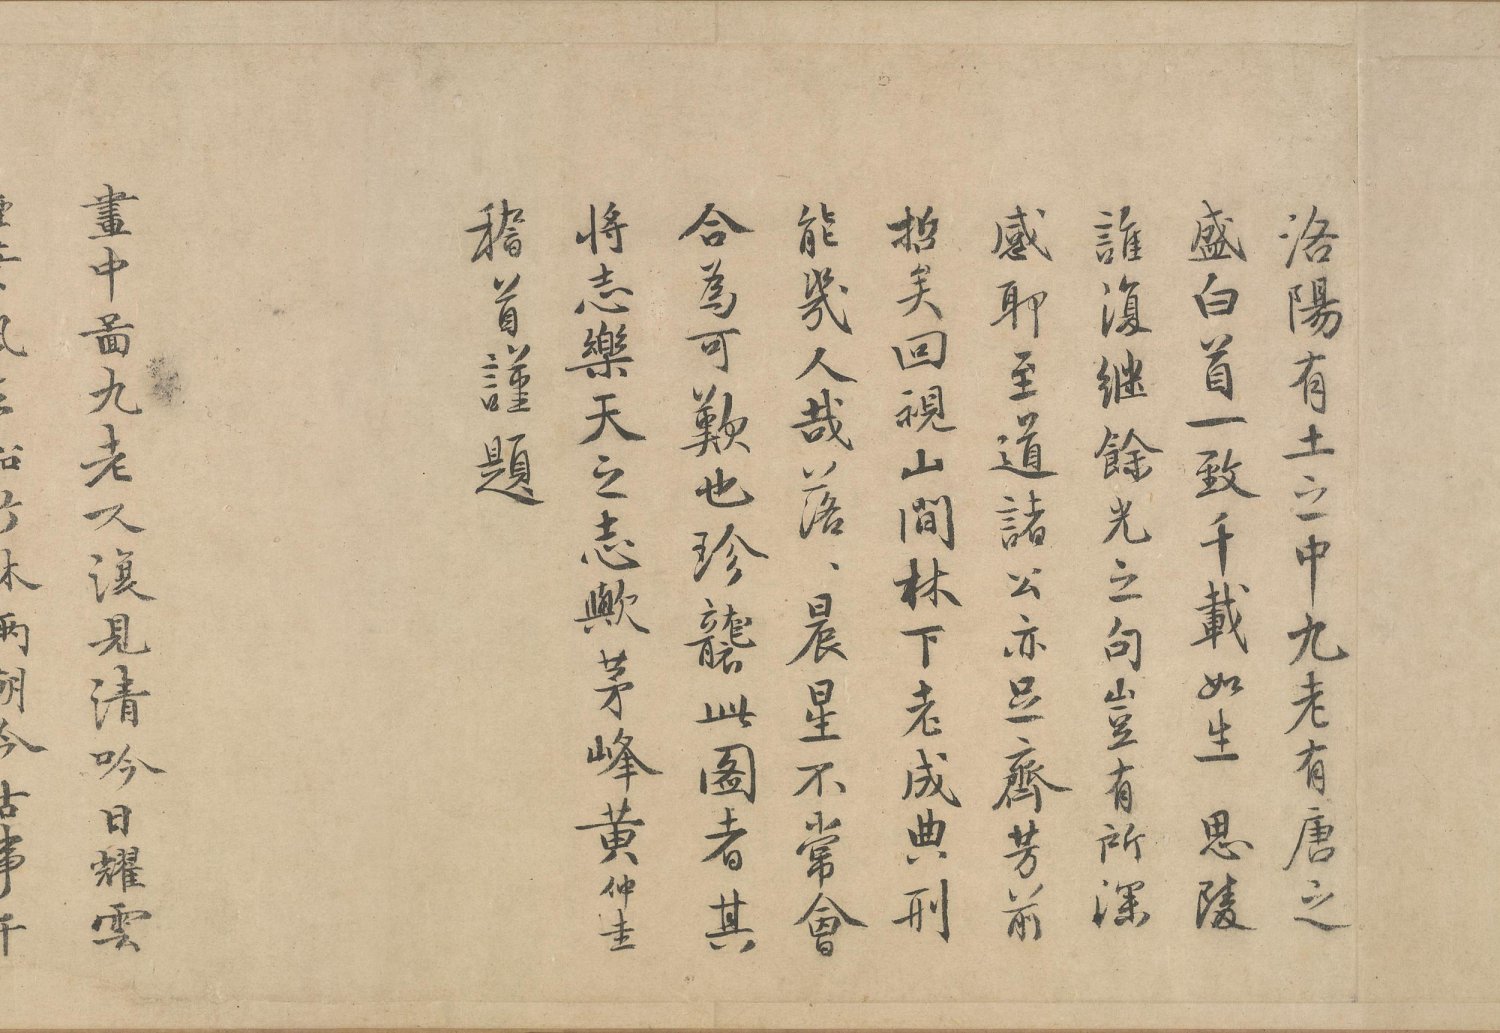 洛陽有土之中九老有唐之
盛白首一致千載如生思陵
誰復継餘光之句豈有所深
感耶至道諸公亦足齊芳前
哲矣回視山間林下老成典刑
能幾人哉落、晨星不常會
合為可歎也珍襲此图者其
将志樂天之志歟茅峰黄仲圭
稽首謹題
畫中啚九老又復見清吟日耀雲
風松竹林兩朝今古事千